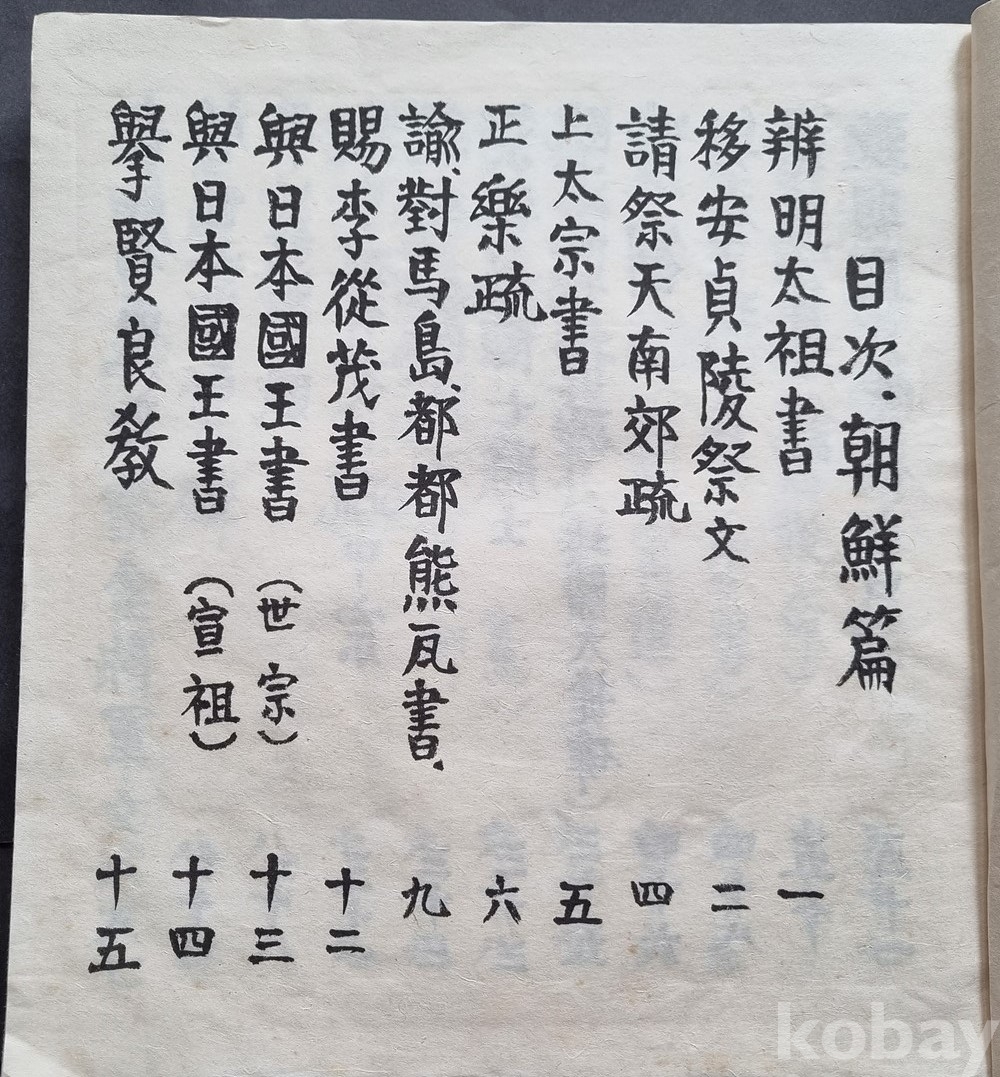 目次·朝鮮篇
辨明太祖書 一
移安貞陵祭文 二
請祭天南郊疏 四
上太宗書 五
正樂疏 六
諭、對馬島、都都熊瓦書、 九
賜李從茂書 十二
與日本國王書 (世宗) 十三
與日本國王書 (宣祖) 十四
擧賢良教 十五
kobay